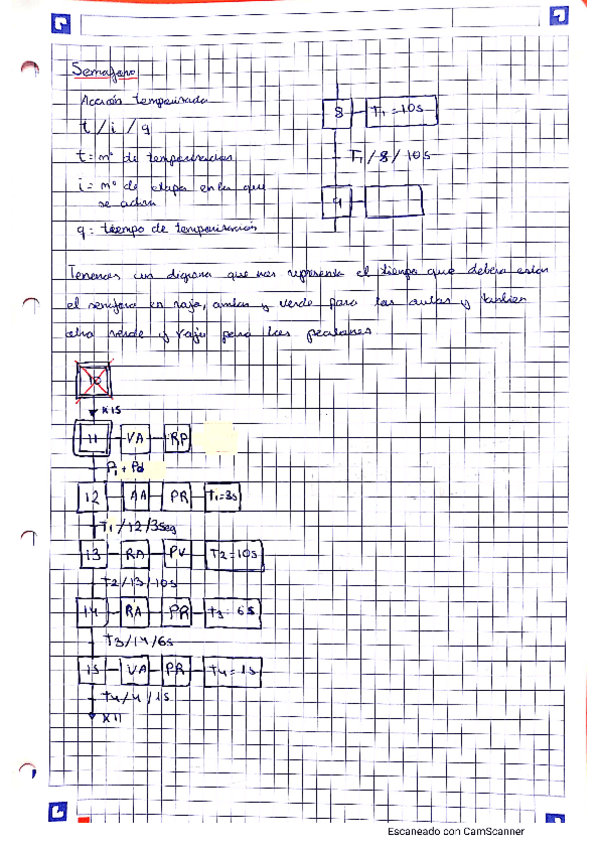 Semaforo
Acción temporizada
t / i / q
t = nº de temporizador
i = nº de etapa en la que
se activa
q = tiempo de temporización
8 T1 = 10s
T1 / 8 / 10s
9
Tenemos un diagrama que nos representa el tiempo que debera estar
el semaforo en rojo, ambar y verde para los autos y tambien
otro verde y rojo para los peatones.
10
X15
11 VA RP
Pi + Pd
12 AA PR T1=3s
T1 / 12 / 3seg
13 RA PV T2=10s
T2 / 13 / 10s
14 RA PR T3= 6s
T3 / 14 / 6s
15 VA PR T4= 1s
T4 / 4 / 1s
X11
Escaneado con CamScanner